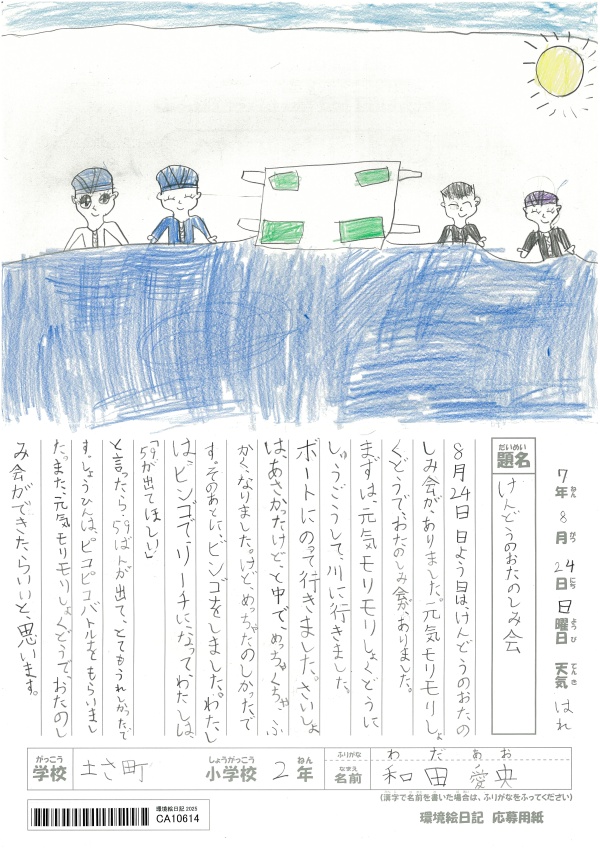 7年8月24日日曜日 天気 はれ
ねん がつ にち ようび てんき
だいめい
題名
けんどうのおたのしみ会
8月24日日よう日はけんどうのおたの
しみ会がありました。元気モリモリしょ
くどうで、おたのしみ会がありました。
まずは、元気モリモリしょくどうに
しゅうごうして、川に行きました。
ボートにのって行きました。さいしょ
は、あさかったけど、と中で、めっちゃくちゃ、ふ
かくなりました。けど、めっちゃたのしかったで
す。そのあとに、ビンゴをしました。わたし
は、ビンゴでリーチになって、わたしは、
「59が出てほしい」
と言ったら、59ばんが出て、とてもうれしかったで
す。しょうひんは、ピコピコバトルをもらいまし
た。また、元気モリモリしょくどうで、おたのし
み会ができたらいいと、思います。
がっこう
学校
土さ町
しょうがっこう
小学校
2年
ねん
ふりがな
わだ あお
なまえ
名前
和田 愛央
(漢字で名前を書いた場合は、ふりがなをふってください)
環境絵日記 2025
CA10614
環境絵日記 応募用紙